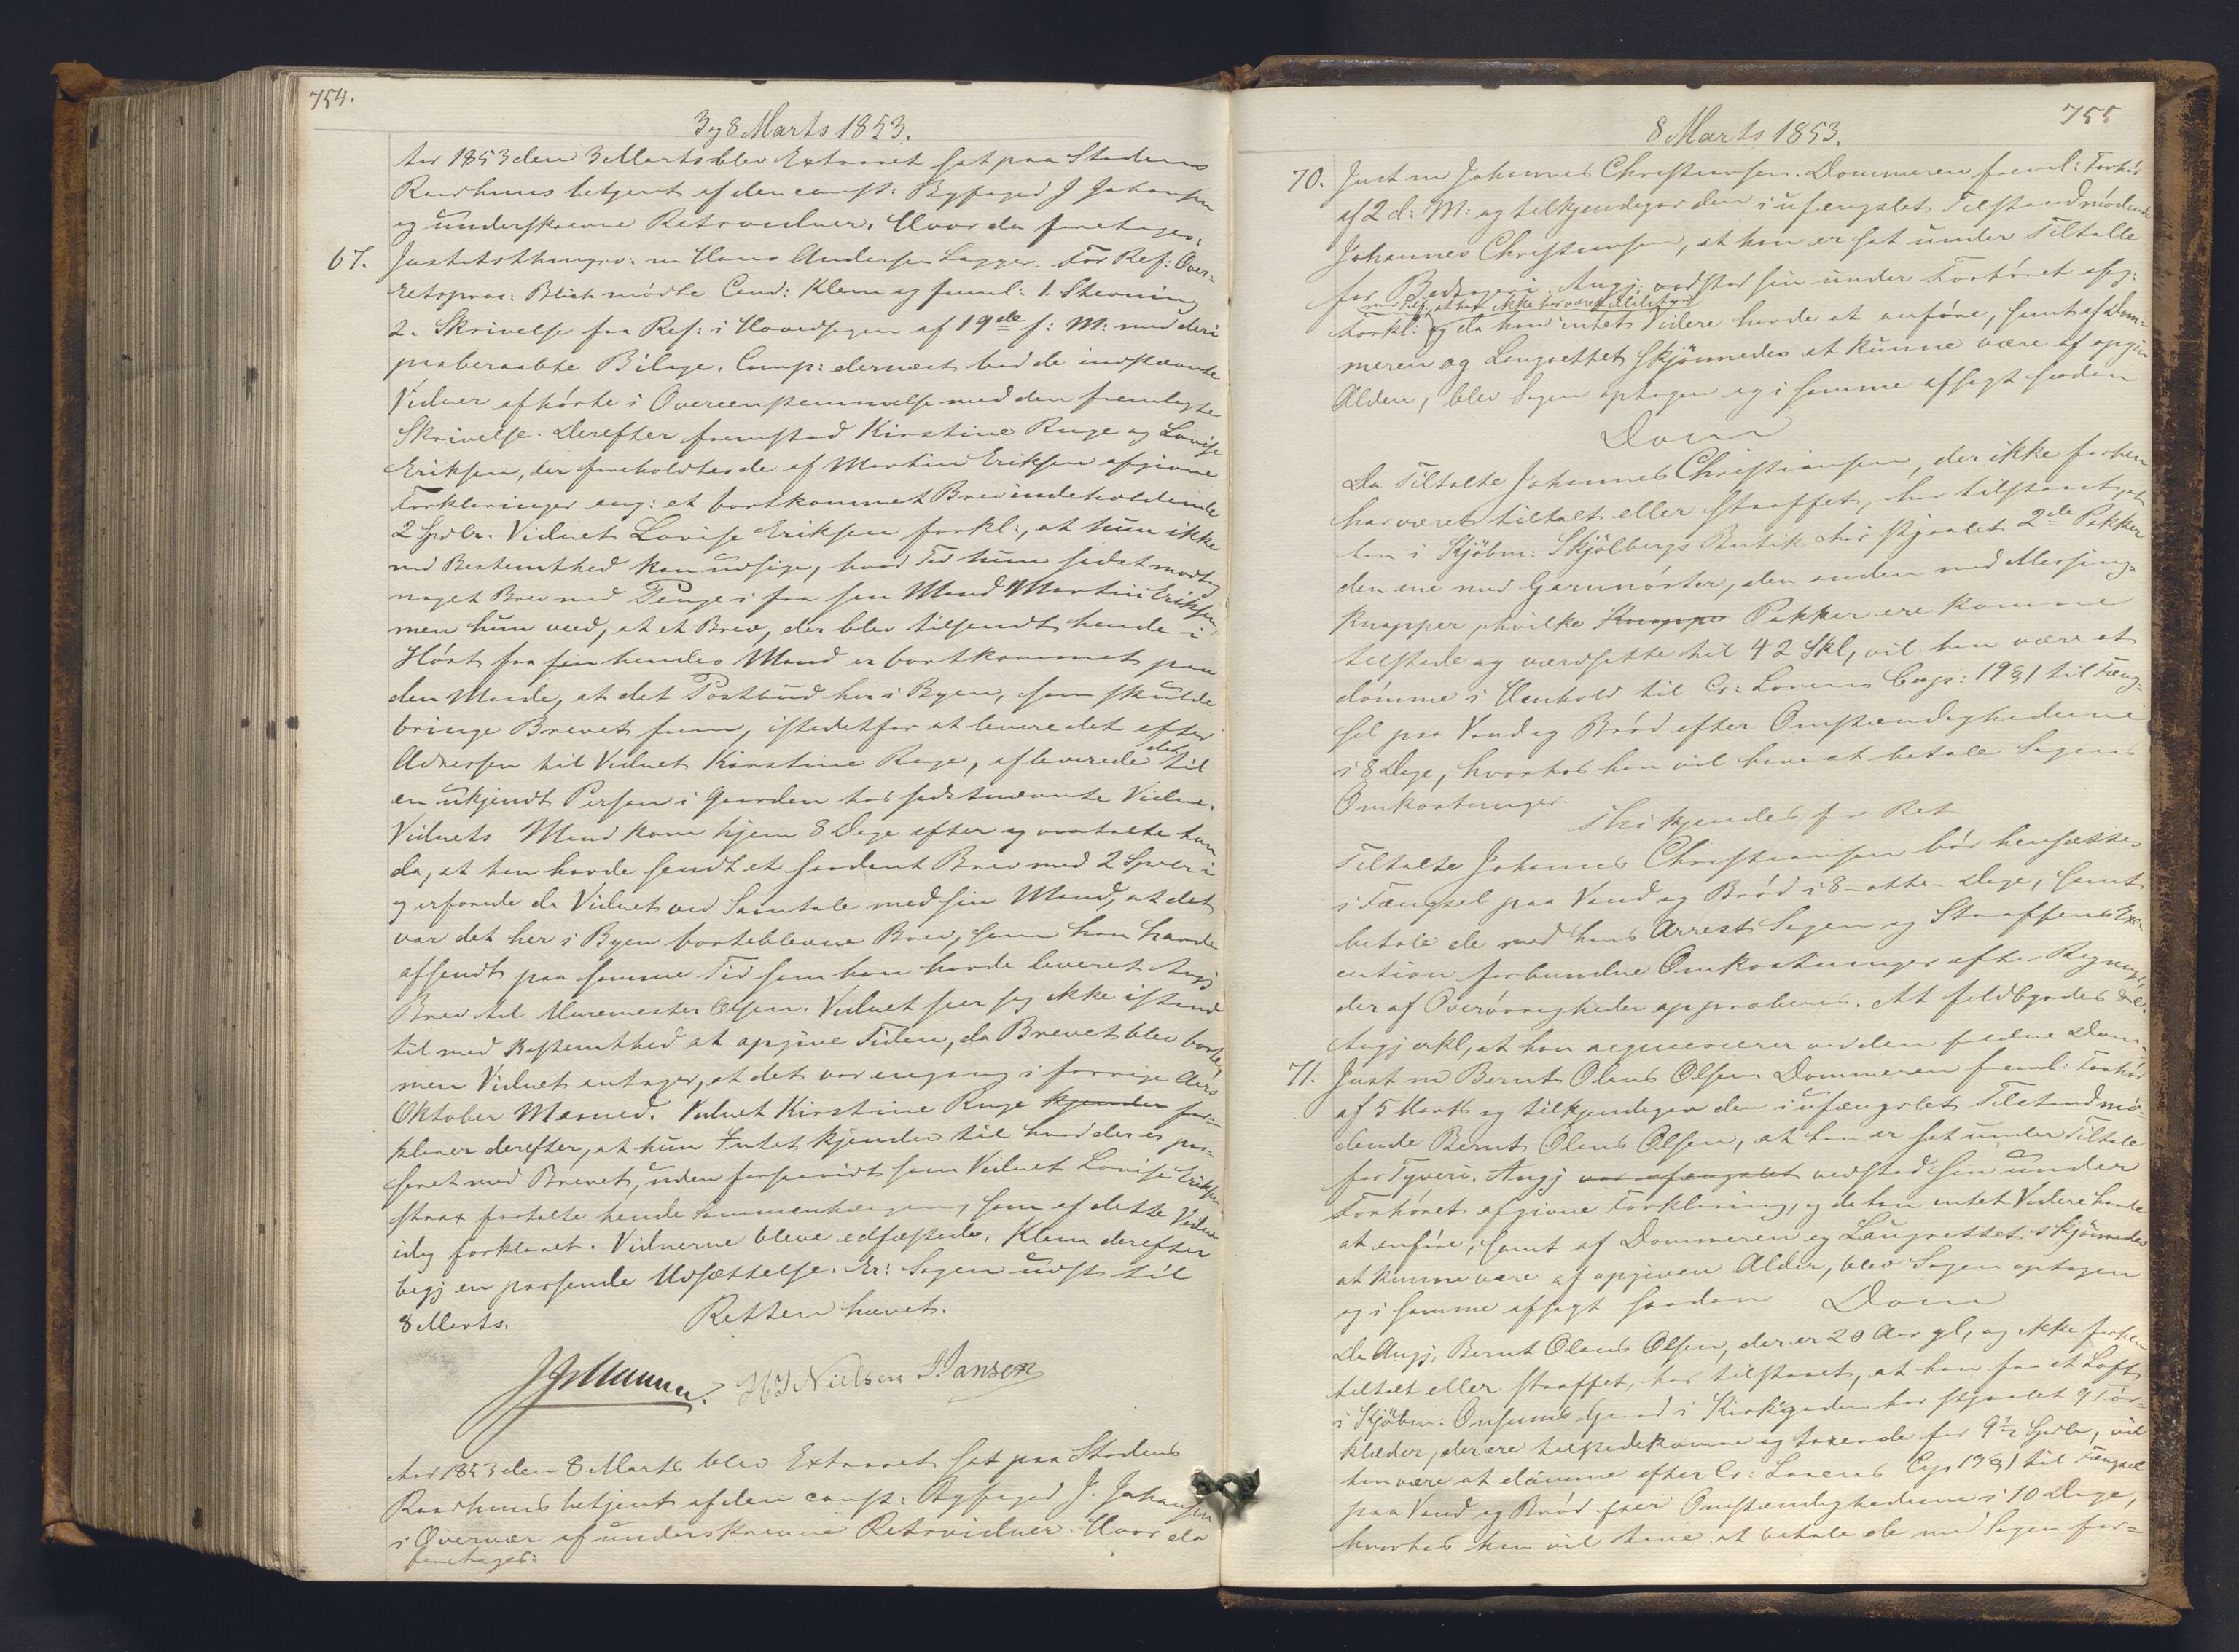 754.
3 og 8 Marts 1853.
Aar 1853 den 3 Marts blev Extraret sat paa Stadens
Raadhuus betjent af den const: Byfoged J Johansen
og underskrevne Retsvidner. Hvor da foretages:
67. Justitsthingsv: m Hans Andersen Lagger. For Ref: Over-
retsproc: Blich mödte Cand: Klem og freml: 1. Stevning
2. Skrivelse fra Ref: i Hovedsagen af 19de f: M: med deri
paaberaabte Bilage. Comp: dernæst bad de indstævnte
Vidner afhörte i Overeensstemmelse med den fremlagte
Skrivelse. Derefter fremstod Kirstine Ruge og Lovise
Eriksen, der foreholdtes de af Martin Eriksen afgivne
Forklaringer ang: et bortkommet Brev indeholdende
2 Spdlr. Vidnet Lovise Eriksen forkl:, at hun ikke
med Bestemthed kan udsige, hvad Tid hun sidst modtog
noget Brev med Penge i fra sin Mand Martin Eriksen,
men hun veed, at et Brev, der blev tilsendt hende i
Höst fra sin hendes Mand er bortkommet paa
den Maade, at det Postbud her i Byen, som skulde
bringe Brevet frem, istedetfor at levere det efter
Adressen til Vidnet Kirstine Ruge, afleverede det til
en ukjendt Person i Gaarden hos sidstnævnte Vidne.
Vidnets Mand kom hjem 8 Dage efter og omtalte han
da, at han havde sendt et saadant Brev med 2 Spdlr i
og erfarede da Vidnet ved Samtale med sin Mand, at det
var det her i Byen borteblevne Brev, som han havde
afsendt paa samme Tid som han havde leveret Angj
Brev til Muremester Olsen. Vidnet seer sig ikke istand
til med Bestemthed at opgive Tiden, da Brevet blev borte,
men Vidnet antager, at det var engang i forrige Aars
Oktober Maaned. Vidnet Kirstine Ruge kjender for-
klarer derefter, at hun Intet kjender til hvad der er pas-
seret med Brevet, uden forsaavidt som Vidnet Lovise Eriksen
strax fortalte hende Sammenhængen, som af dette Vidne
idag forklaret. Vidnerne bleve edfæstede. Klem derefter
begj en passende Udsættelse. Er: Sagen uds til
8 Marts. Retten hævet.
H J Nielsen Hansen
Aar 1853 den 8 Marts blev Extraret sat paa Stadens
Raadhuus betjent af den const: Byfoged J. Johansen
i Overvær af underskrevne Retsvidner. Hvor da
foretages:
755
8 Marts 1853.
70. Just m Johannes Christiansen. Dommeren freml: Forhör
af 2 d: M: og tilkjendegav den i ufængslet Tilstand mödende
Johannes Christiansen, at han er sat under Tiltale
for Bedrageri. Angj: vedstod sin under Forhöret afg:
med Tilf, at han ikke har været
Forkl: og da han intet Videre havde at anföre, samt af Dom-
meren og Laugrettet skjönnedes at kunne være af opgiven
Alder, blev Sagen optagen og i samme afsagt saadan
Dom
Da Tiltalte Johannes Christiansen, der ikke forhen
har været tiltalt eller straffet, har tilstaaet, at
han i Kjöbm: Skjölbergs Butik har stjaalet 2de Pakker
den ene med Garnnöster, den anden med Messing-
knapper, hvilke Knappe Pakker ere komne
tilstede og værdsatte til 42 Skl, vil han være at
dömme i Henhold til Cr: Lovens Cap: 19 § 1 til Fæng-
sel paa Vand og Bröd efter Omstændighederne
i 8 Dage, hvorhos han vil have at betale Sagens
Omkostninger.
Thi kjendes for Ret
Tiltalte Johannes Christiansen bör hensættes
i Fængsel paa Vand og Bröd i 8 - otte - Dage, samt
betale de med hans Arrest, Sagen og Straffens Exe-
cution forbundne Omkostninger efter Regning,
der af Overövrigheden approberes. At fuldbyrdes &c.
Angj erkl, at han acquiescerer ved den faldne Dom.
71. Just m Bernt Olaus Olsen. Dommeren freml: Forhör
af 5 Marts og tilkjendegav den i ufængslet Tilstand mö-
dende Bernt Olaus Olsen, at han er sat under Tiltale
for Tyveri. Angj var ufængslet vedstod sin under
Forhöret afgivne Forklaring, og da han intet Videre havde
at anföre, samt af Dommeren og Laugrettet skjönnedes
at kunne være af opgiven Alder, blev Sagen optagen
og i samme afsagt saadan Dom
Da Angj. Bernt Olaus Olsen, der er 20 Aar gl, og ikke forhen
tiltalt eller straffet, har tilstaaet, at han fra et Loft
i Kjöbm: Gaard i Kirkegaden har stjaalet 9 Tör-
klæder, der ere tilstedekomne og taxerede for 9 1/2 Spdlr, vil
han være at dömme efter Cr: Lovens Cap 19 § 1 til Fængsel
paa Vand og Bröd efter Omstændighederne i 10 Dage,
hvorhos han vil have at betale de med Sagen for-